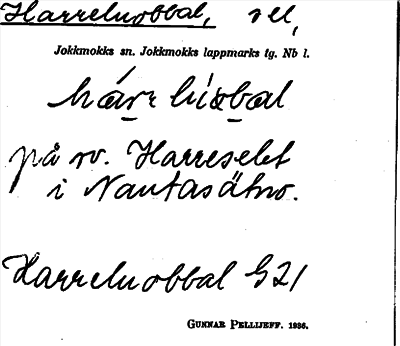 Harreluobbal, sel,
Jokkmokks sn. Jokkmokks lappmarks tg. Nb l.
på sv. Harreselet
i Nautasätno.
Harreluobbal G21
GUNNAR PELLIJEFF. 1936.